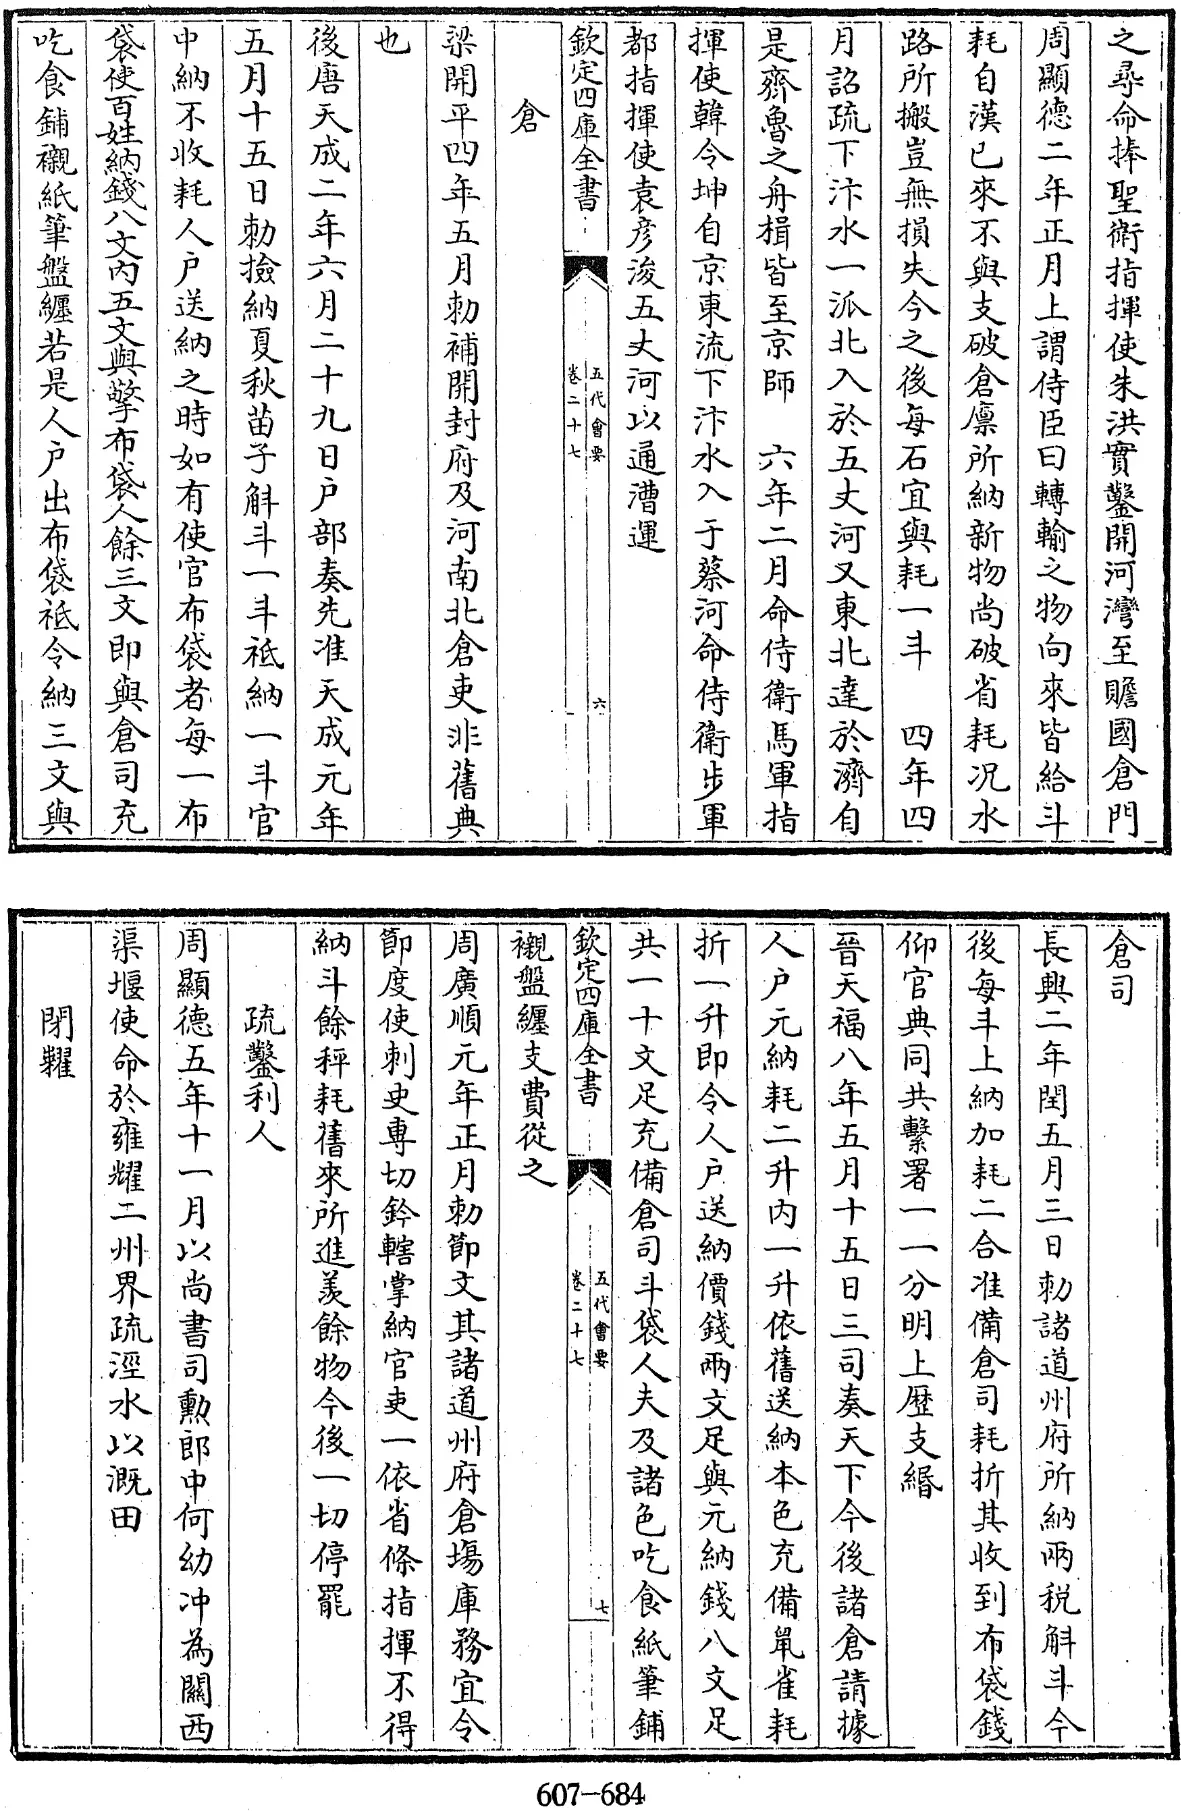 之尋命捧聖衛指揮使朱洪實鑿開河灣至贍國倉門
周顯德二年正月上謂侍臣曰轉輸之物向來皆給斗
耗自漢已來不與支破倉廪所納新物尚破省耗况水
路所搬豈無損失今之後每石宜與耗一斗　四年四
月詔疏下汴水一派北入於五丈河又東北達於濟自
是齊魯之舟楫皆至京師　六年二月命侍衛馬軍指
揮使韓令坤自京東流下汴水入于蔡河命侍衛步軍
都指揮使袁彦浚五丈河以通漕運
欽定四庫全書
五代會要
卷二十七
六
倉
梁開平四年五月勅補開封府及河南北倉吏非舊典
也
後唐天成二年六月二十九日户部奏先准天成元年
五月十五日勅撿納夏秋苗子斛斗一斗祗納一斗官
中納不收耗人户送納之時如有使官布袋者每一布
袋使百姓納錢八文内五文與擎布袋人餘三文即與倉司充
吃食鋪襯紙筆盤纒若是人户出布袋祗令納三文與
倉司
長興二年閏五月三日勅諸道州府所納兩税斛斗今
後每斗上納加耗二合准備倉司耗折其收到布袋錢
仰官典同共繫署一一分明上歴支緡
晉天福八年五月十五日三司奏天下今後諸倉請據
人户元納耗二升内一升依舊送納本色充備䑕雀耗
折一升即令人户送納價錢兩文足與元納錢八文足
共一十文足充備倉司斗袋人夫及諸色吃食紙筆鋪
欽定四庫全書
五代會要
卷二十七
七
襯盤纒支費從之
周廣順元年正月勅節文其諸道州府倉塲庫務宜令
節度使刺史專切鈐轄掌納官吏一依省條指揮不得
納斗餘秤耗舊來所進羨餘物今後一切停罷
疏鑿利人
周顯德五年十一月以尚書司勲郎中何幼冲為關西
渠堰使命於雍耀二州界疏涇水以溉田
閉糶
607-684